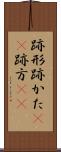 跡形跡かた
跡方